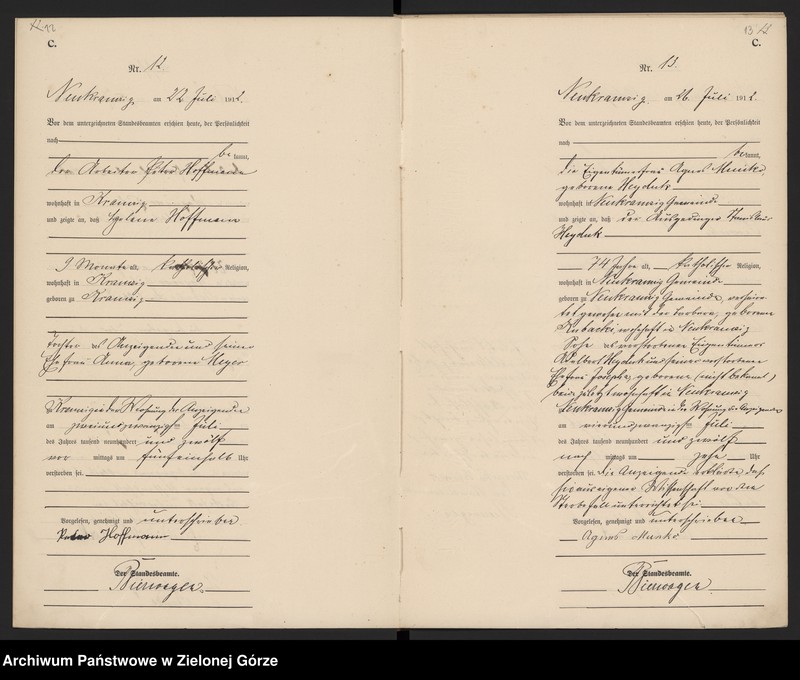 12
C.
Nr. 12.
Neukramzig am 22 Juli 1912.
Vor dem unterzeichneten Standesbeamten erschien heute, der Persönlichkeit
nach
be kannt,
der Arbeiter Peter Hoffmann
wohnhaft in Kramzig
und zeigte an, daß Helene Hoffmann
9 Monate alt, katholischer Religion,
wohnhaft in Kramzig
geboren zu Kramzig
Tochter des Anzeigenden und seiner
Ehefrau Anna, geborene Meyer
Kramzig in der Wohnung des Anzeigenden
am zweiundzwanzigsten Juli
des Jahres tausend neunhundert und zwölf
vor mittags um fünfeinhalb Uhr
verstorben sei.
Vorgelesen, genehmigt und unterschrieben
Peter Hoffmann
Der Standesbeamte.
Bierwagen
13
C.
Nr. 13.
Neukramzig am 26. Juli 1912.
Vor dem unterzeichneten Standesbeamten erschien heute, der Persönlichkeit
nach
be kannt,
die Eigentümerfrau Agnes
geborene Heyduk
wohnhaft in Neukramzig Gemeinde
und zeigte an, daß der Ausgedinger
Heyduk
74 Jahre alt, katholischer Religion,
wohnhaft in Neukramzig Gemeinde
geboren zu Neukramzig Gemeinde, verheira-
tet gewesen mit der Barbara, geborene
Kubacki, wohnhaft in Neukramzig
Sohn des verstorbenen Eigentümers
Adalbert Heyduk und seiner verstorbenen
Ehefrau Josepha, geborene (nicht bekannt)
beide zuletzt wohnhaft in Neukramzig
Neukramzig Gemeinde in der Wohnung der Anzeigenden
am vierundzwanzigsten Juli
des Jahres tausend neunhundert und zwölf
nach mittags um zehn Uhr
verstorben sei. Die Anzeigende erklärte, daß
sie aus eigener Wissenschaft von dem
Sterbefall unterrichtet sei
Vorgelesen, genehmigt und unterschrieben
Agnes
Der Standesbeamte.
Bierwagen
Archiwum Państwowe w Zielonej Górze